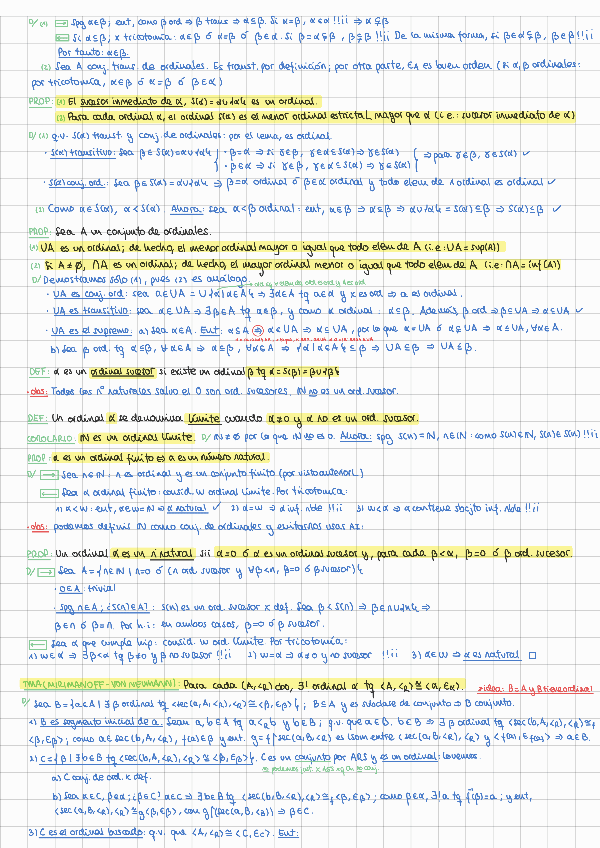 D/ (1) → Spg α∈β; ent, como β ord ⇒ β trans ⇒ α⊆β. Si α=β, α∈α !!¡¡ ⇒ α⊊β
← Si α⊊β; x tricotomía: α∈β ó α=β ó β∈α. Si β=α⊊β, β⊊β !!¡¡ De la misma forma, si β∈α⊊β, β∈β !!¡¡
Por tanto: α∈β.
(2) Sea A conj. trans. de ordinales. Es transt. por definición; por otra parte, ∈A es buen orden (si α,β ordinales:
por tricotomía, α∈β ó α=β ó β∈α)
PROP: (1) El sucesor inmediato de α, S(α)=α∪{α} es un ordinal.
(2) Para cada ordinal α, el ordinal S(α) es el menor ordinal estrictat. mayor que α (i.e.: sucesor inmediato de α)
D/ (1) q.v. S(α) transt. y conj. de ordinales: por el lema, es ordinal
· S(α) transitivo: Sea β∈S(α)=α∪{α} · β=α ⇒ si γ∈β, γ∈α⊆S(α) ⇒ γ∈S(α)
· β∈α ⇒ si γ∈β, γ∈α⊆S(α) ⇒ γ∈S(α) ⇒ para γ∈β, γ∈S(α) ✓
· S(α) conj. ord.: Sea β∈S(α)=α∪{α} ⇒ β=α ordinal ó β∈α ordinal y todo elem de 1 ordinal es ordinal ✓
(2) Como α∈S(α), α<S(α) Ahora: sea α<β ordinal: ent, α∈β ⇒ α⊆β ⇒ α∪{α}=S(α)⊆β ⇒ S(α)≤β ✓
PROP: Sea A un conjunto de ordinales.
(1) UA es un ordinal; de hecho, el menor ordinal mayor o igual que todo elem de A (i.e: UA=sup(A))
(2) Si A≠∅, ∩A es un ordinal; de hecho, el mayor ordinal menor o igual que todo elem de A (i.e: ∩A=inf(A))
D/ Demostramos sólo (1), pues (2) es análogo
· UA es conj. ord: sea a∈UA = U{α|α∈A} ⇒ ∃α∈A tq a∈α y x es ord ⇒ a es ordinal.
· UA es transitivo: sea α∈UA ⇒ ∃β∈A tq α∈β, y como x ordinal: α⊆β. Además, β ord ⇒ β⊆UA ⇒ α⊆UA ✓
· UA es el supremo: a) sea α∈A. Ent: α⊆A ⇒ α∈UA ⇒ α⊆UA, por lo que α=UA ó α⊊UA ⇒ α≤UA, ∀α∈A.
b) Sea β ord. tq α≤β, ∀α∈A ⇒ α⊆β, ∀α∈A ⇒ U{α|α∈A}⊆β ⇒ UA⊆β ⇒ UA≤β.
DEF: α es un ordinal sucesor si existe un ordinal β tq α=S(β)=β∪{β}
· obs: Todos los nº naturales salvo el 0 son ord. sucesores. ℕ no es un ord. sucesor.
DEF: Un ordinal α se denomina límite cuando α≠0 y α no es un ord. sucesor.
COROLARIO: ℕ es un ordinal límite. D/ ℕ≠∅ por lo que ℕ no es 0. Ahora: spg S(n)=ℕ, n∈ℕ: como S(n)∈ℕ, S(n)∈S(n) !!¡¡
PROP: α es un ordinal finito ⇔ α es un número natural.
D/ → Sea n∈ℕ: n es ordinal y es un conjunto finito (por visto anteriort.)
← Sea α ordinal finito: consid. w ordinal límite. Por tricotomía:
1) α<w: ent, α∈w=ℕ ⇒ α natural ✓ 2) α=w ⇒ α inf. nble !!¡¡ 3) w<α ⇒ α contiene sbcjto inf. nble !!¡¡
· obs: podemos definir ℕ como conj. de ordinales y evitarnos usar AI:
PROP: Un ordinal α es un n natural sii α=0 ó α es un ordinal sucesor y, para cada β<α, β=0 ó β ord. sucesor.
D/ → Sea A={n∈ℕ | n=0 ó (n ord. sucesor y ∀β<n, β=0 ó β sucesor)}
· 0∈A: trivial
· spg n∈A; ¿S(n)∈A?: S(n) es un ord. sucesor x def. Sea β<S(n) ⇒ β∈n∪{n} ⇒
β∈n ó β=n. Por h.i: en ambos casos, β=0 ó β sucesor.
← Sea α que cumple hip: consid. w ord. límite. Por tricotomía:
1) w∈α ⇒ ∃β<α tq β≠0 y β no sucesor !!¡¡ 2) w=α ⇒ α≠0 y no sucesor !!¡¡ 3) α∈w ⇒ α es natural □
TMA (MIRIMANOFF-VON NEUMANN): Para cada (A,<R) cbo, ∃! ordinal α tq <A,<R>≅<α,∈α>. idea: B=A y B tiene ordinal
D/ Sea B={a∈A | ∃β ordinal tq <sec(a,A,<R),<R>≅<β,∈β>}; B⊆A y es subclase de conjunto ⇒ B conjunto.
1) B es segmento inicial de A: Sean a,b∈A tq a<R b y b∈B; q.v. que a∈B. b∈B ⇒ ∃β ordinal tq <sec(b,A,<R),<R>≅f
<β,∈β>; como a∈sec(b,A,<R), f(a)∈β y ent. g=f↾sec(a,B,<R) es isom entre <sec(a,B,<R),<R> y <f(a),∈f(a)> ⇒ a∈B.
2) C={β | ∃b∈B tq <sec(b,B,<R),<R>≅<β,∈β>}. C es un conjunto por ARS y es un ordinal: loveamos.
a) C conj. de ord. x def.
b) Sea α∈C, β∈α; ¿β∈C? α∈C ⇒ ∃b∈B tq <sec(b,B,<R),<R>≅f<β,∈β>; como β∈α, ∃!a tq f(β)=a; y ent,
<sec(a,B,<R),<R>≅g<β,∈β>, con g↾(sec(a,B,<R)) ⇒ β∈C.
3) C es el ordinal buscado: q.v. que <A,<R>≅<C,∈C>. Ent: